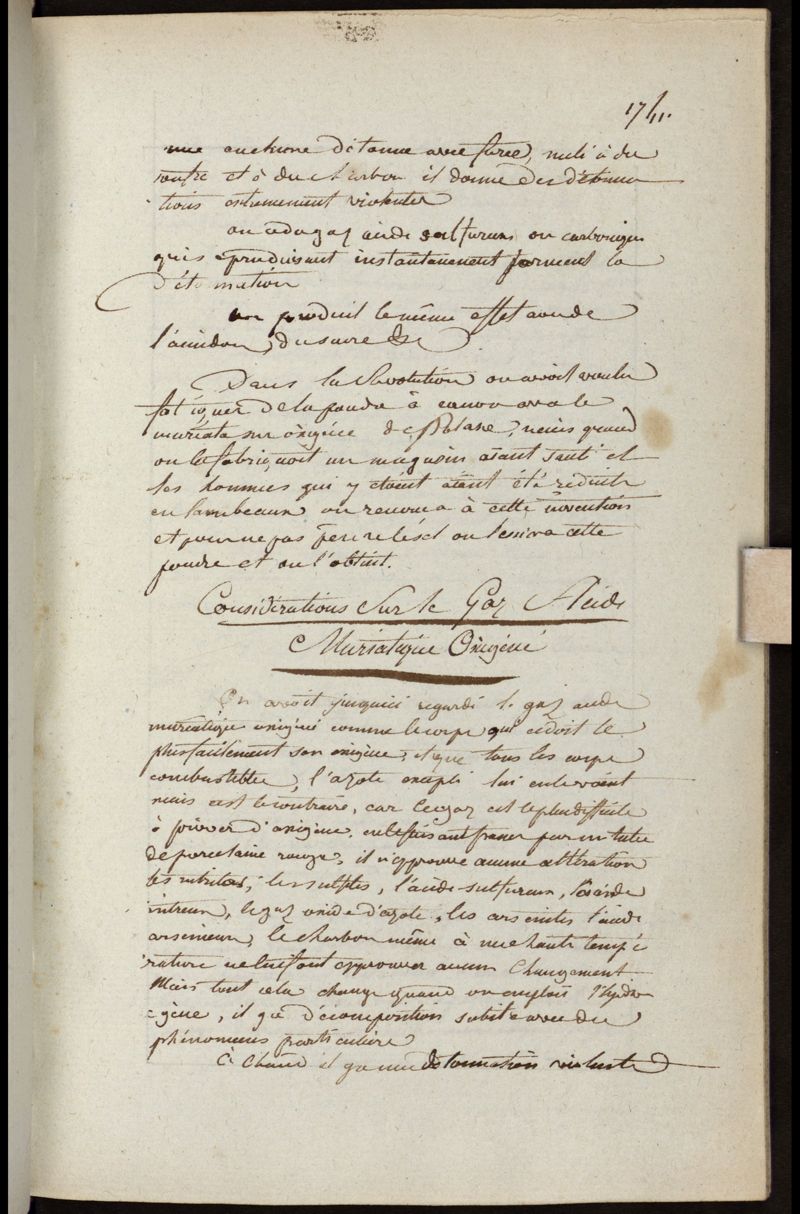 174.
une enclume détonne avec force, mêlé à du
soufre et à du charbon il donne des détonna
tions extremement violentes
on a du gaz acide sulfureux ou carbonique
qui se produisant instantanement forment la
détonnation
on produit le même effet avec de
l'amidon, du sucre &c
Dans la Révolution on avoit voulu
fabriquer de la poudre à canon avec le
muriate suroxigéné de Potasse, mais quand
on la fabriquoit un magasin aiant sauté et
les hommes qui y etoient aiant été réduits
en lambeaux on renonca à cette invention
et pour ne pas perdre le sel on lessiva cette
poudre et on l'obtint.
Considérations Sur le Gaz Acide
Muriatique Oxigéné
On avoit jusqu'ici regardé le gaz acide
muriatique oxigéné comme le corps qui cédoit le
plus facilement son oxigène, et que tous les corps
combustibles, l'azote excepté lui enlevoient
mais c'est le contraire, car ce gaz est le plus difficile
à priver d'oxigène. en le faisant passer par un tube
de porcelaine rouge, il n'epprouve aucune altération
les nitrites, les sulfites, l'acide sulfureux, l'acide
nitreux, le gaz oxide d'azote, les arsenites l'acide
arsenieux, le charbon même à une haute tempé
rature ne lui font epprouver aucun changement
Mais tout cela change quand on emploie l'hydro
gène, il y a décomposition subite avec des
phénomènes particuliers
à chaud il y a une détonnation violente